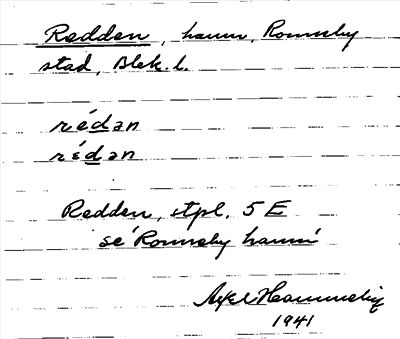 Redden, hamn, Ronneby
stad, Blek. l.
rédən
rédən
Redden, stpl. 5 E
se Ronneby hamn
Axel
1941